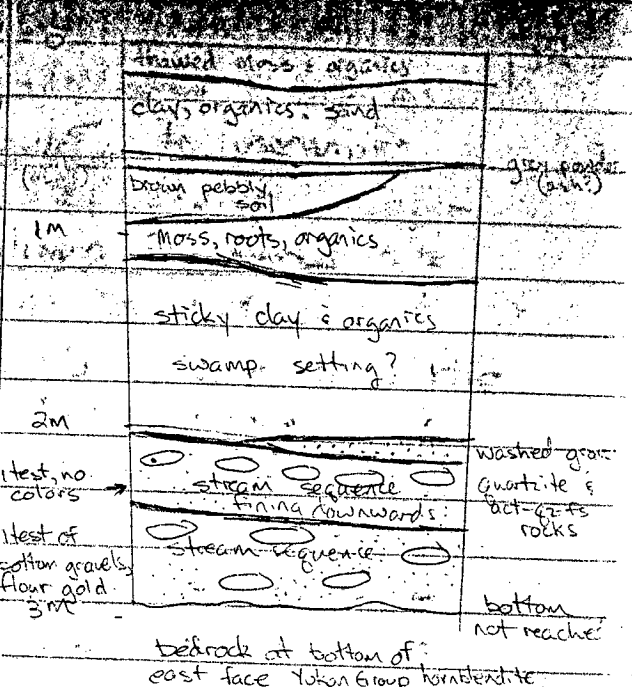 thawed moss & organics
clay, organics, sand
grey powder
(ash?)
brown pebbly
soil
1M
Moss, roots, organics
sticky clay & organics
swamp setting?
2M
washed
1 test, no
colors
stream sequence
fining downwards
quartzite &
act-qz-fs
rocks
1 test of
bottom gravels,
flour gold
stream sequence
3M
bottom
not reached
bedrock at bottom of
east face Yukon Group hornblendite